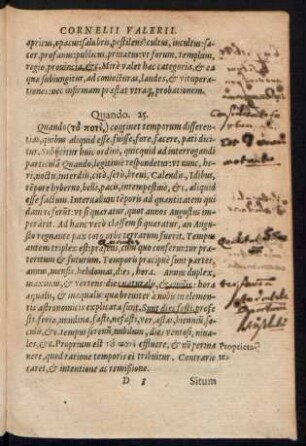 CORNELII VALERII.
apricus, opacus: salubris, pestilens: cultus, incultus: sa-
cer, profanus: publicus, privatus: vt forum, templum,
regio, provincia &c. Mirè valet hæc categoria, & ea
quæ subiungitur, ad coniecturas, laudes, & vitupera-
tiones: nec infirmam præstat vtraq; probationem.
Quando. 25.
Quando (τὸ ποτὶ,) continet temporum differen-
tias, quibus aliquid esse, fuisse, fore, facere, pati dici-
tur. Subijcitur huic ordini, quicquid ad interrogandi
particulā Quando, legitimè respondetur: vt nunc, he-
ri, noctu, interdiu, citò, serò, breui, Calendis, Idibus,
tēpore hyberno, belli, pacis, intempestiuè, &c. aliquid
esse factum. Interuallum tēporis ad quantitatem qui-
dam referunt: vt si quæratur, quot annos Augustus im-
perârit. Ad hanc verò classem si quæratur, an Augu-
sto regnante pax toto orbe terrarum fuerit. Tempus
autem triplex est: præsens, cum quo conferuntur præ-
teritum & futurum. Temporis præcipuè sunt partes,
annus, mensis, hebdomas, dies, hora. Annus duplex,
maximus, & vertens: dies naturalis, & ciuilis: horæ
æqualis, & inæqualis: quæ breuiter à nobis in elemen-
tis astronomicis explicata sunt. Sunt dies festi, profe-
sti, feriæ, nundinæ, fasti, nefasti, ver, æstas, biennii, se-
culū, &c. tempus serenū, nubilum, dies ventosi, niua-
les, &c. Proprium est τὸ ποτὶ effluere, & nūq́ perma
nere, quod ratione temporis ei tribuitur. Contrario
caret, & intentione ac remissione.
Proprieta-
tes.
D 3 Situm